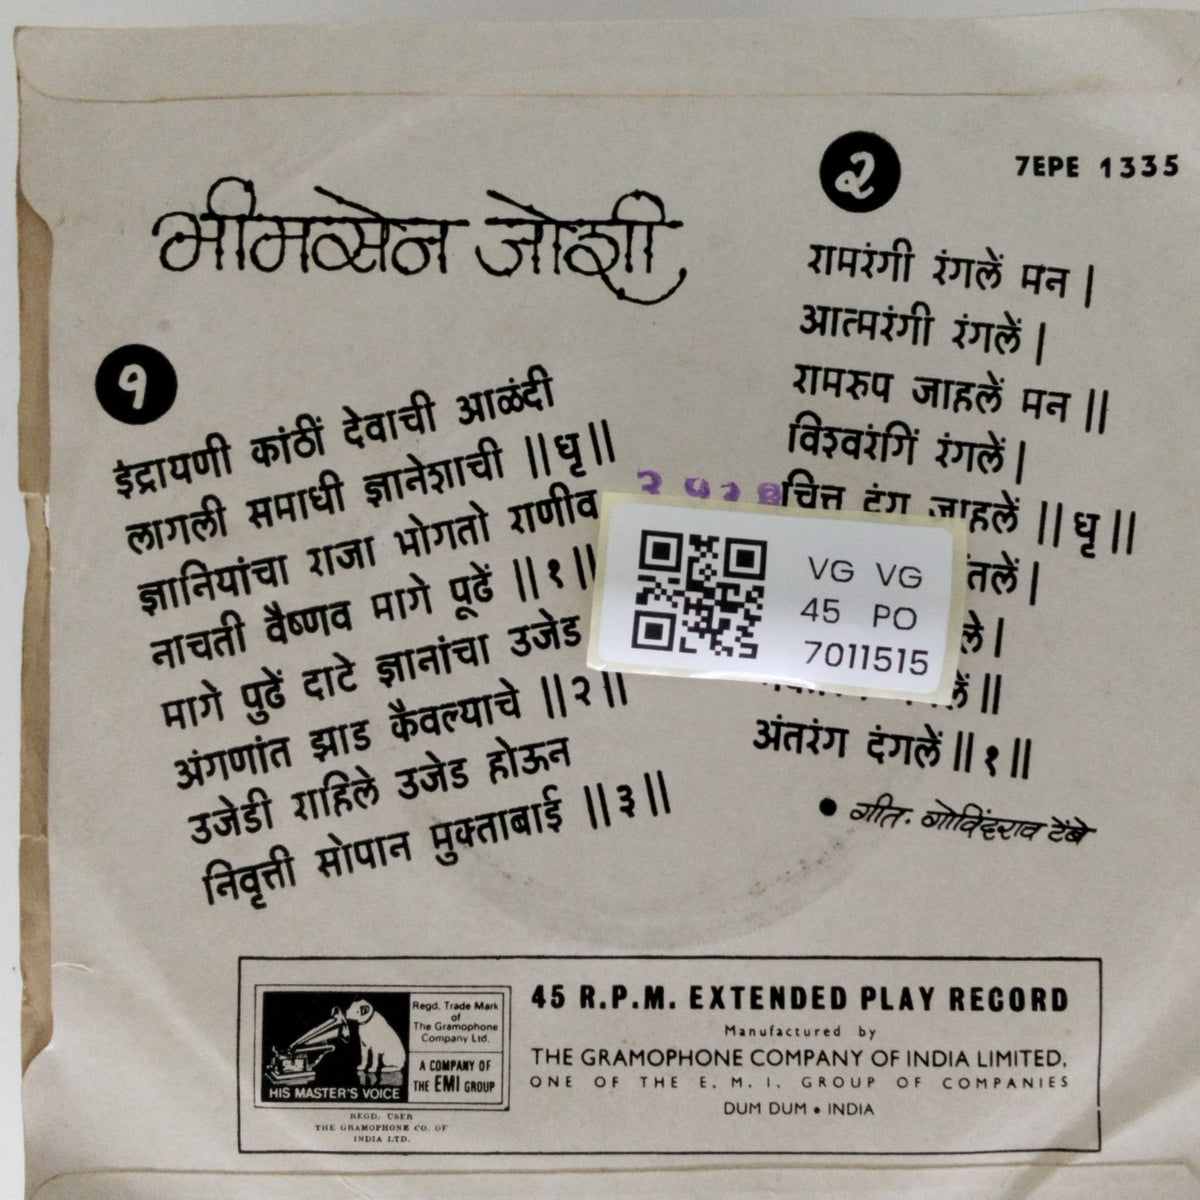 भीमसेन जोशी
१
इंद्रायणी कांठीं देवाची आळंदी
लागली समाधी ज्ञानेशाची ||धृ||
ज्ञानियांचा राजा भोगतो राणीव
नाचती वैष्णव मागे पूढें ||१||
मागे पुढें दाटे ज्ञानांचा उजेड
अंगणांत झाड कैवल्याचे ||२||
उजेडी राहिले उजेड होऊन
निवृत्ती सोपान मुक्ताबाई ||३||
7EPE 1335
२
रामरंगी रंगलें मन |
आत्मरंगी रंगलें |
रामरुप जाहलें मन ||
विश्वरंगिं रंगलें |
चित्त दंग जाहलें || धृ ||
अंतरंग दंगलें || १ ||
• गीत. गोविंदराव टेंबे
VG VG
45 PO
7011515
HIS MASTER'S VOICE
Regd. Trade Mark
of
The Gramophone
Company Ltd.
A COMPANY OF
THE EMI GROUP
REGD. USER
THE GRAMOPHONE CO. OF
INDIA LTD.
45 R.P.M. EXTENDED PLAY RECORD
Manufactured by
THE GRAMOPHONE COMPANY OF INDIA LIMITED,
ONE OF THE E. M. I. GROUP OF COMPANIES
DUM DUM • INDIA